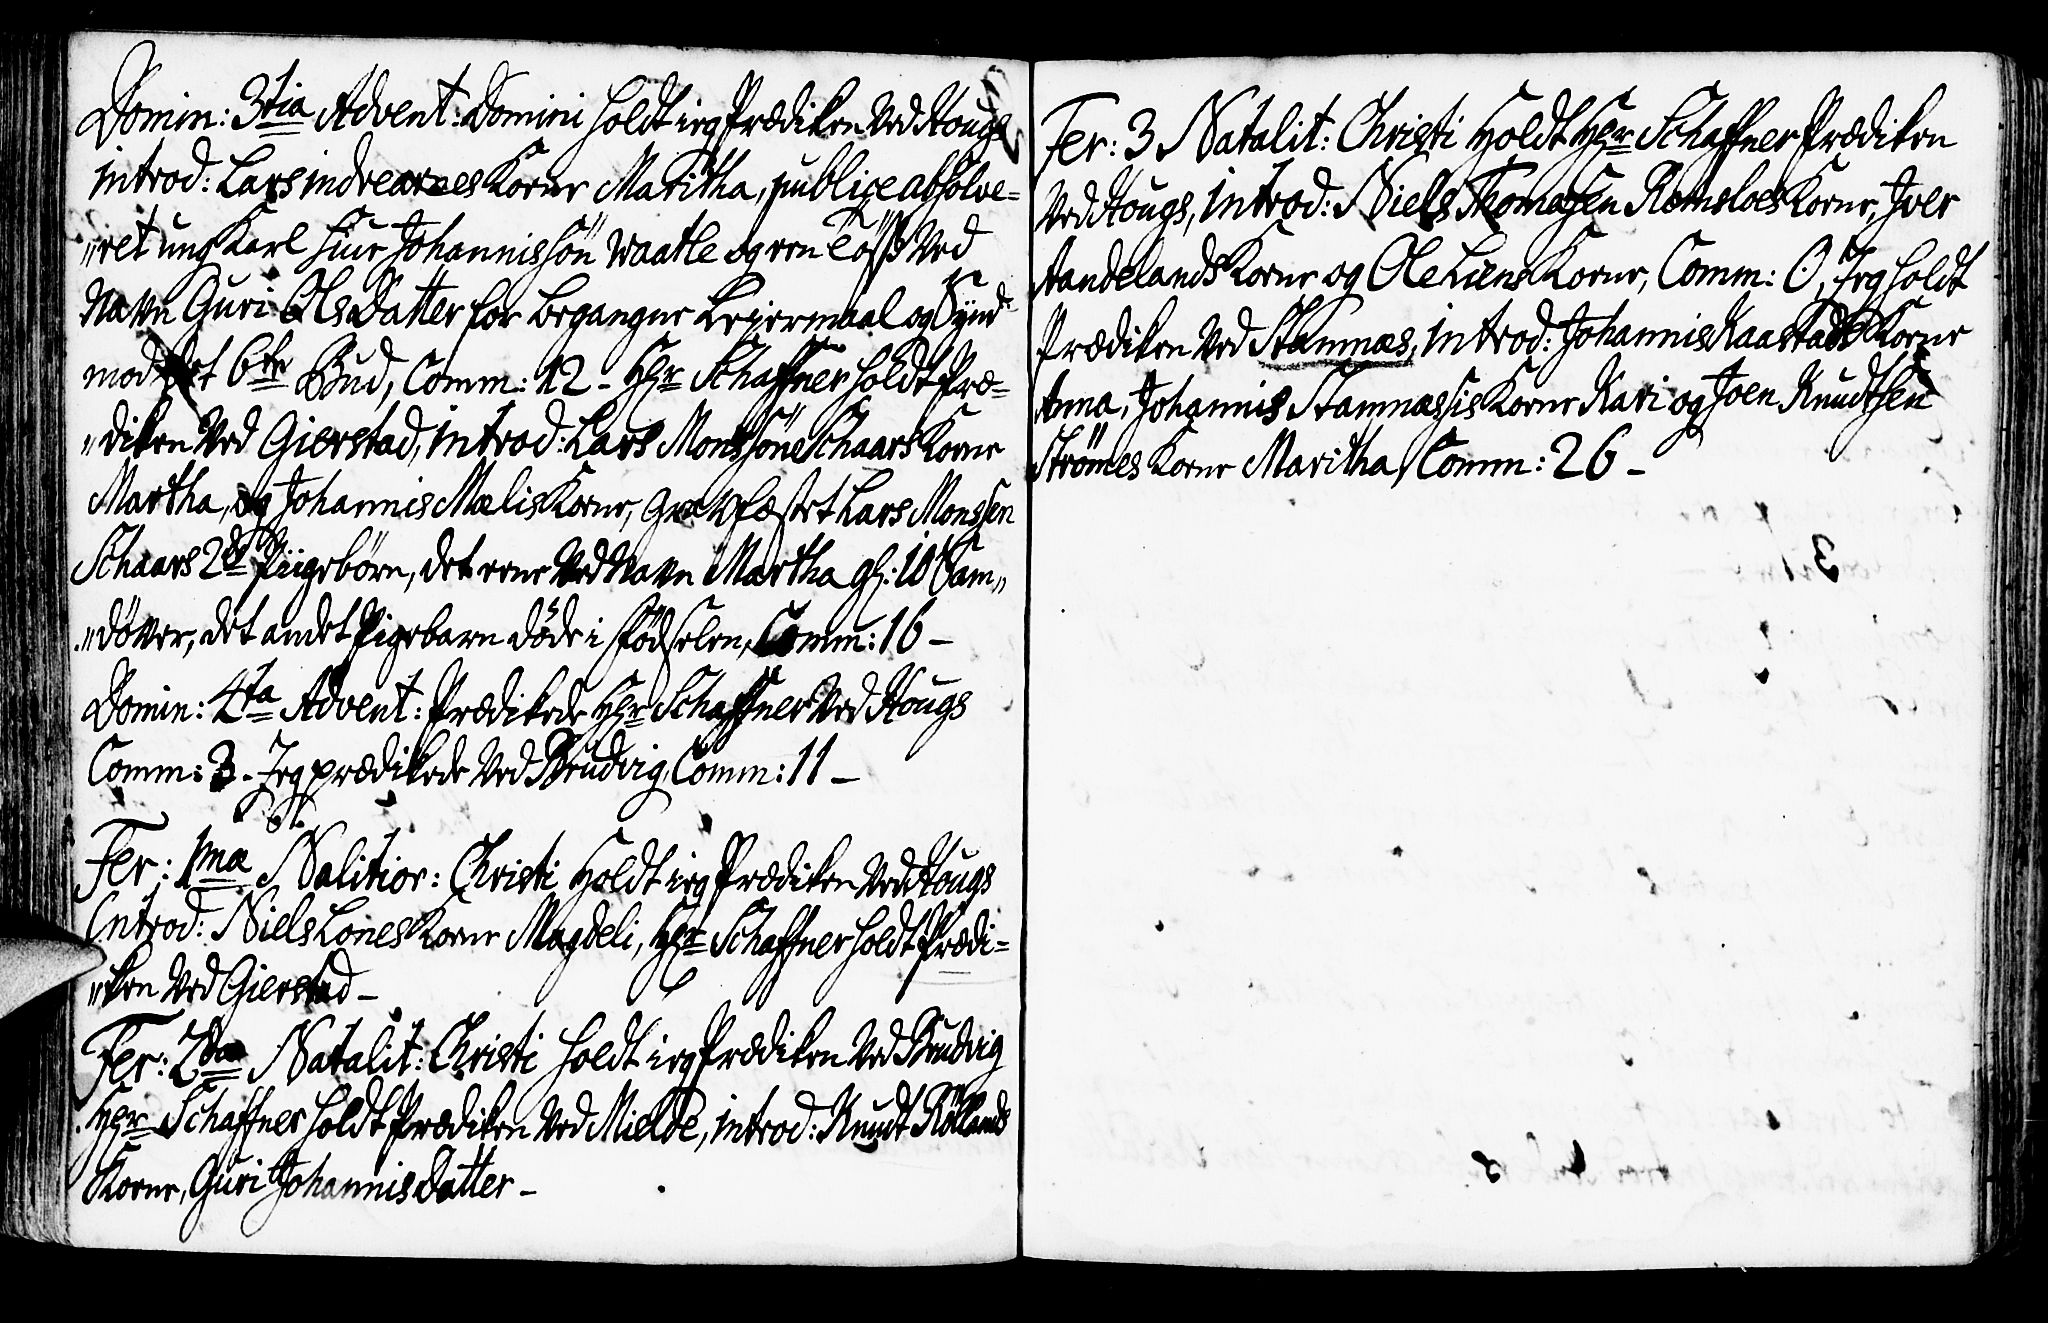 Domin: 3tia Advent: Domini holdt ieg Prædiken ved Hougs
introd: Lars indrearnes Kone Maritha, publice absolve=
"ret ung Karl Siur Johannissön Waatle og een Töß ved
Navn Guri OlsDatter for begangne Leiermaal og Synd
mod det 6te Bud, Comm: 12 - Hr Schaffner holdt Præ=
"diken ved Gierstad, introd: Lars Monssöne Schaars Kone
Martha, og Johannis Mælis Kone, Gr: Kfæstet Lars Monssen
Schaars 2de Piigebörn, det eene ved Navn Martha gl: 10 Sam"
"döver, det andet Pigebarn döde i födselen, Comm: 16 -
Domin: 4ta Advent: Prædikede Hr Schaffner ved Hougs
Comm: 3 - Jeg prædikede ved Brudvig, Comm: 11 -
Fer: 1mæ Nalitior: Christi Holdt ieg Prædiken ved Hougs
Introd: Niels Lones Kone Magdeli, Hr Schaffner holdt Prædi=
"ken ved Gierstad -
Fer: 2dæ Natalit: Christi holdt ieg Prædiken ved Brudvig
Hr Schaffner holdt Prædiken ved Mielde, introd: Knudt Röllands
Kone, Guri JohannisDatter -
Fer: 3 Natalit: Christi Holdt Hr Schaffner Prædiken
ved Hougs, introd: Niels Thomassen Romsloes Kone, Iver
Aandelands Kone og Ole Liens Kone, Comm: 0, Jeg holdt
Prædiken ved Stamnæs, introd: Johannis Kaastads Kone
Anna, Johannis Stamnæssis Kone Kari og Joen Knudtsen
Strömes Kone Maritha, Comm: 26 -